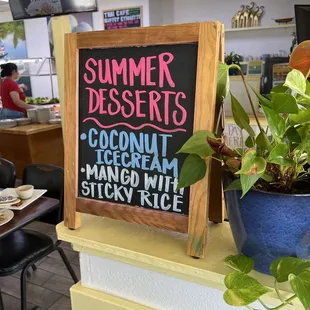 SUMMER
DESSERTS
•COCONUT
ICECREAM
•MANGO WITH
STICKY RICE